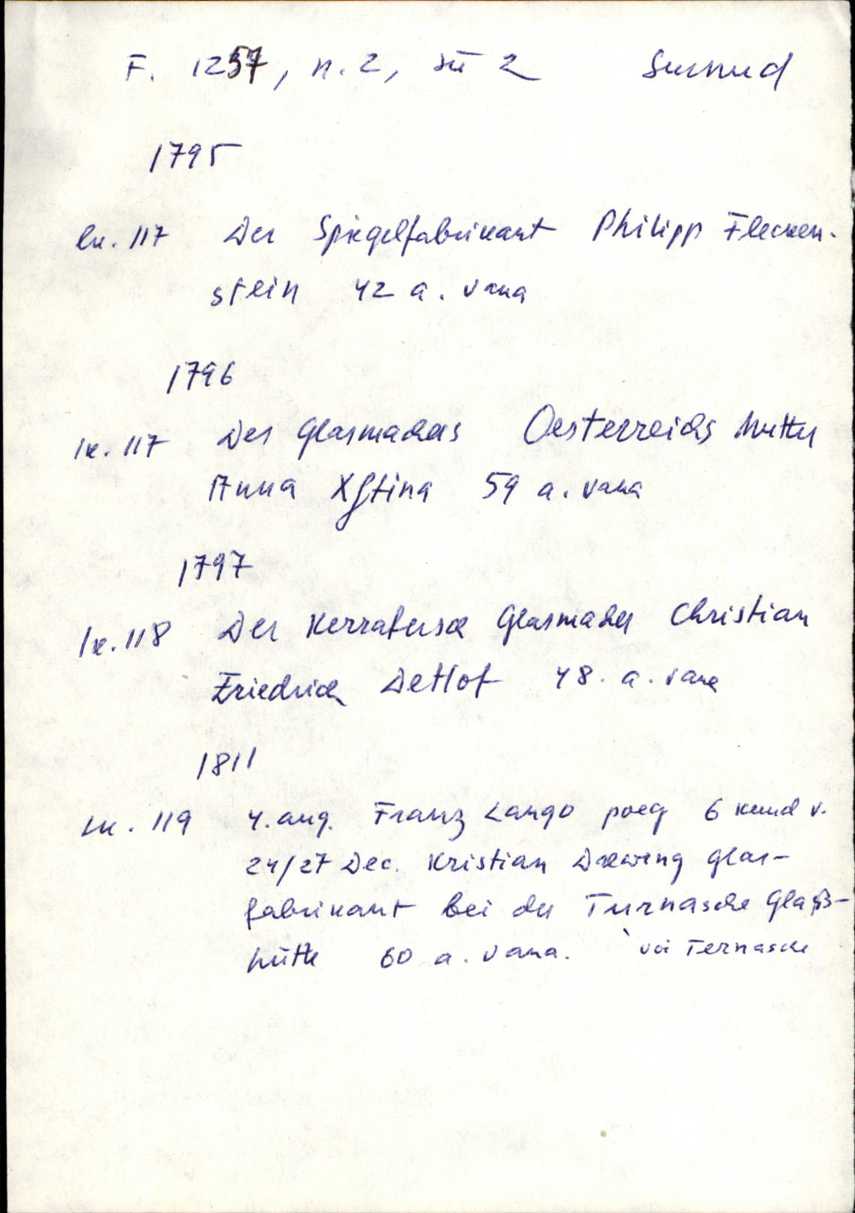 F. 1257, n. 2, sü 2 Surnud
1795
lk. 117 Der Spiegelfabrikant Philipp Flecken-
stein 42 a. vana
1796
lk. 117 Des Glasmachers Oesterreichs Mutter
Anna Xstina 59 a. vana
1797
lk. 118 Der Kerrafersche Glasmacher Christian
Friedrich Detlof 48. a. vana
1811
lk. 119 4. aug. Franz Lango poeg 6 kuud v.
24/27 Dec. Kristian Drewing Glas-
fabrikant bei der Turnasche Glaß-
hütte 60 a. vana. või Ternasche